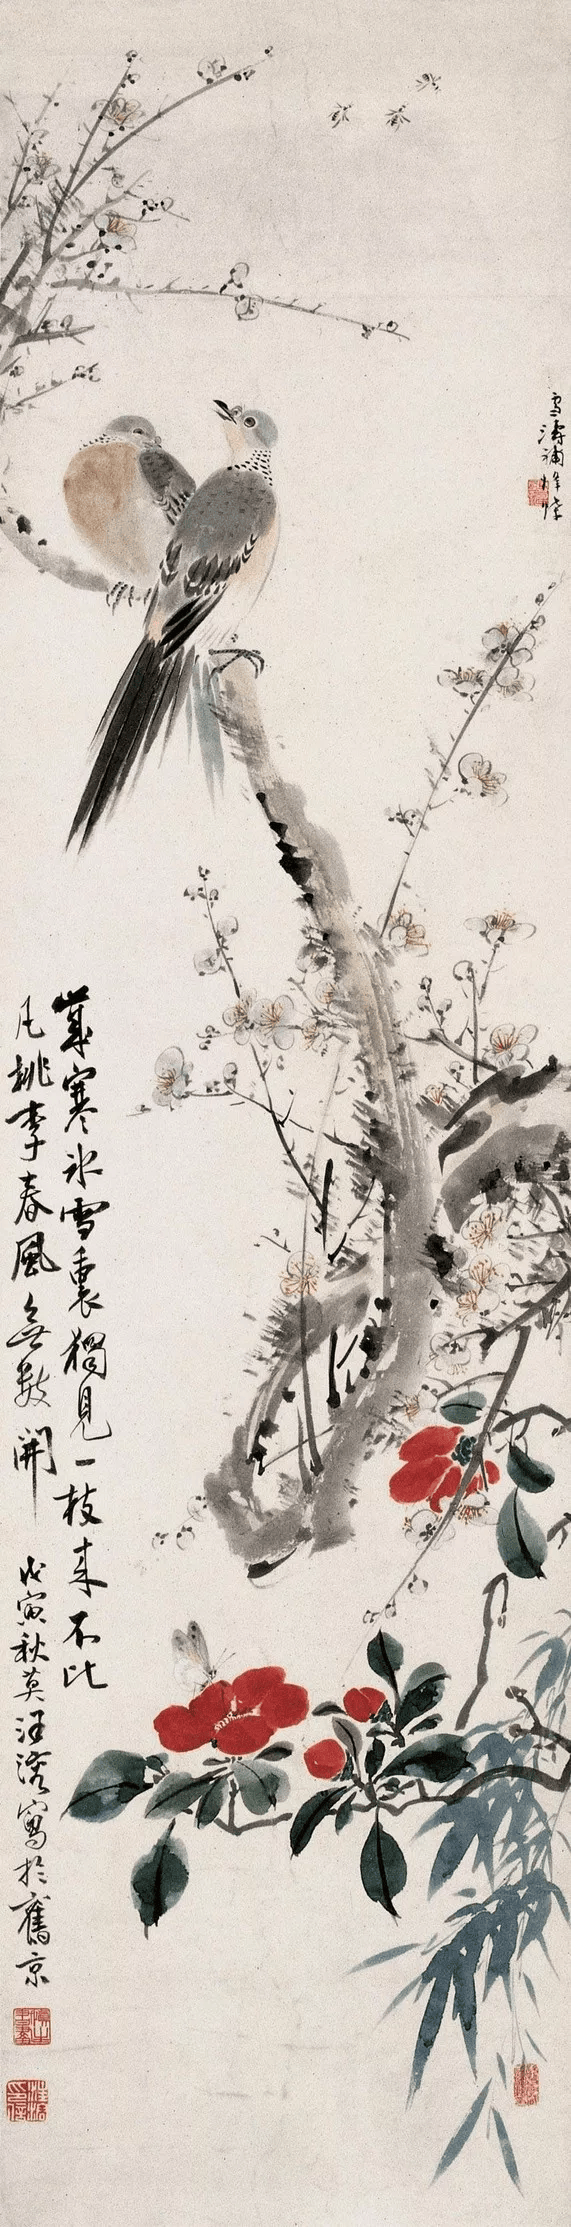 雪濤補蜂蝶
歲寒冰雪裏獨見一枝來不比
凡桃李春風無數開 戊寅秋莫汪溶寫於舊京